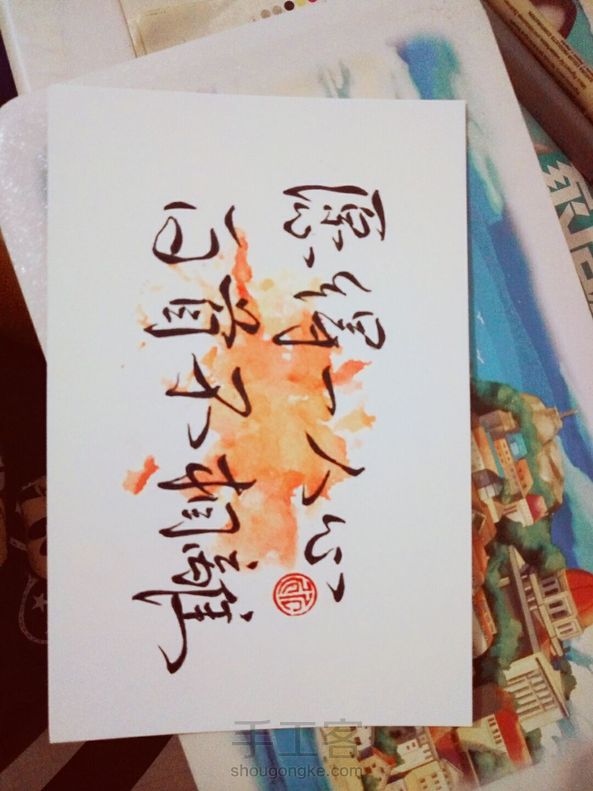 愿得一人心
白首不相離
手工客
shougongke.com